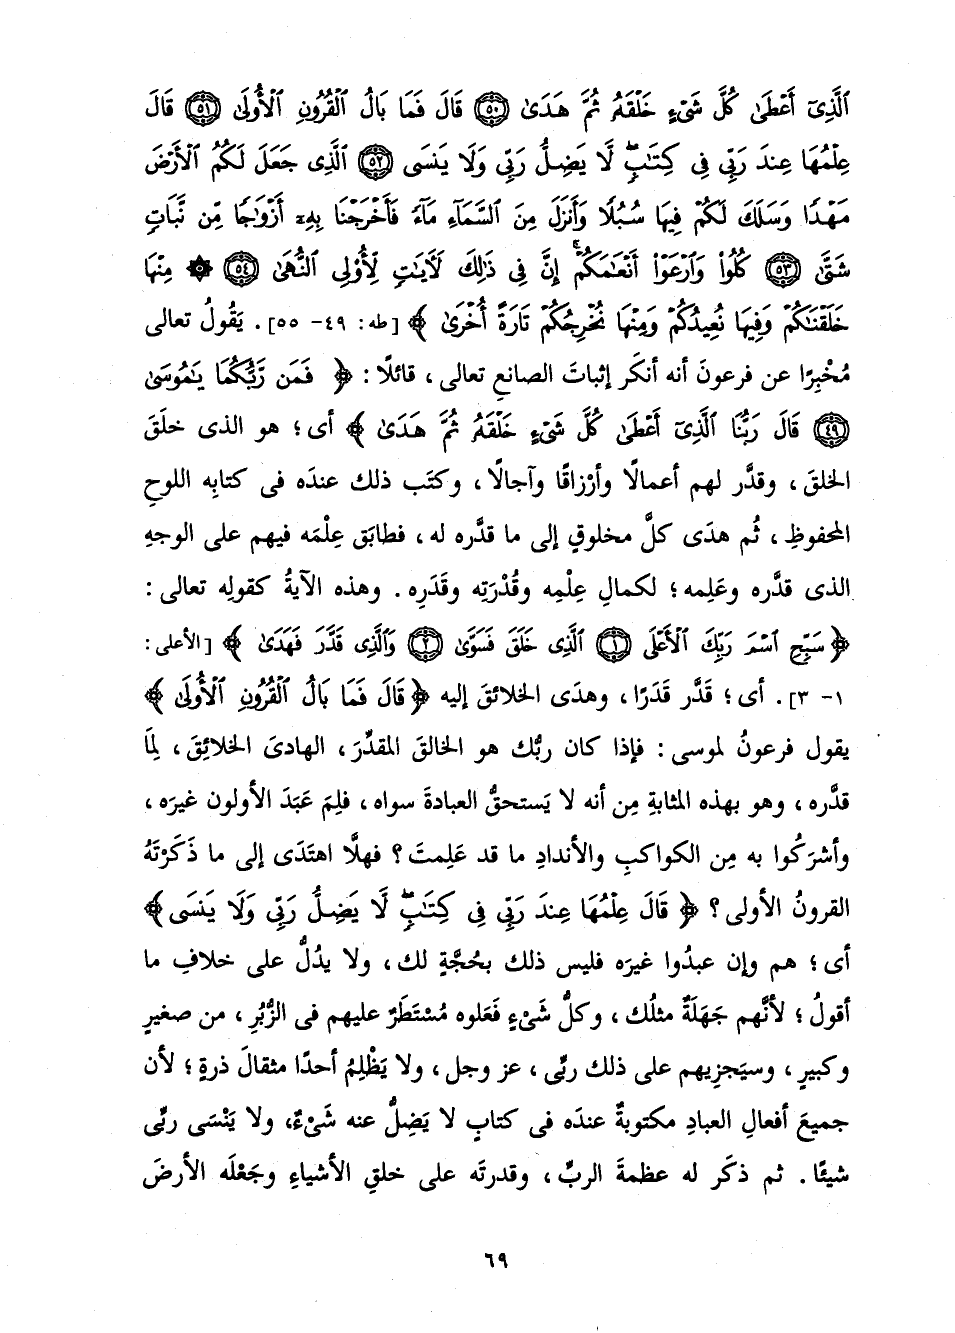 ٱلَّذِىٓ أَعْطَىٰ كُلَّ شَىْءٍ خَلْقَهُۥ ثُمَّ هَدَىٰ ﴿٥٠﴾ قَالَ فَمَا بَالُ ٱلْقُرُونِ ٱلْأُولَىٰ ﴿٥١﴾ قَالَ
عِلْمُهَا عِندَ رَبِّى فِى كِتَٰبٍۖ لَّا يَضِلُّ رَبِّى وَلَا يَنسَى ﴿٥٢﴾ ٱلَّذِى جَعَلَ لَكُمُ ٱلْأَرْضَ
مَهْدًا وَسَلَكَ لَكُمْ فِيهَا سُبُلًا وَأَنزَلَ مِنَ ٱلسَّمَآءِ مَآءً فَأَخْرَجْنَا بِهِۦٓ أَزْوَٰجًا مِّن نَّبَاتٍ
شَتَّىٰ ﴿٥٣﴾ كُلُوا۟ وَٱرْعَوْا۟ أَنْعَٰمَكُمْۗ إِنَّ فِى ذَٰلِكَ لَءَايَٰتٍ لِّأُو۟لِى ٱلنُّهَىٰ ﴿٥٤﴾ ۞ مِنْهَا
خَلَقْنَٰكُمْ وَفِيهَا نُعِيدُكُمْ وَمِنْهَا نُخْرِجُكُمْ تَارَةً أُخْرَىٰ ﴾ [طه: ٤٩- ٥٥]. يَقُولُ تعالى
مُخْبِرًا عن فرعونَ أنه أنكَر إثباتَ الصانعِ تعالى، قائلًا: ﴿ فَمَن رَّبُّكُمَا يَٰمُوسَىٰ
﴿٤٩﴾ قَالَ رَبُّنَا ٱلَّذِىٓ أَعْطَىٰ كُلَّ شَىْءٍ خَلْقَهُۥ ثُمَّ هَدَىٰ ﴾ أى؛ هو الذى خلَق
الخلقَ، وقدَّر لهم أعمالًا وأرْزاقًا وآجالًا، وكتَب ذلك عندَه فى كتابِه اللوحِ
المحفوظِ، ثُم هدَى كلَّ مخلوقٍ إلى ما قدَّره له، فطابَق عِلْمَه فيهم على الوجهِ
الذى قدَّره وعَلِمه؛ لكمالِ عِلْمِه وقُدْرَتِه وقَدَرِه. وهذه الآيةُ كقولِه تعالى:
﴿ سَبِّحِ ٱسْمَ رَبِّكَ ٱلْأَعْلَى ﴿١﴾ ٱلَّذِى خَلَقَ فَسَوَّىٰ ﴿٢﴾ وَٱلَّذِى قَدَّرَ فَهَدَىٰ ﴾ [الأعلى:
١- ٣]. أى؛ قَدَّر قَدَرًا، وهدَى الخلائقَ إليه ﴿ قَالَ فَمَا بَالُ ٱلْقُرُونِ ٱلْأُولَىٰ ﴾
يقول فرعونُ لموسى: فإذا كان ربُّك هو الخالقَ المقدِّرَ، الهادىَ الخلائقَ، لِمَا
قدَّره، وهو بهذه المثابةِ مِن أنه لا يَستحقُّ العبادةَ سواه، فلِمَ عَبَدَ الأولون غيرَه،
وأشرَكُوا به مِن الكواكبِ والأندادِ ما قد عَلِمتَ؟ فهلَّا اهتَدَى إلى ما ذَكَرْتَهُ
القرونُ الأولى؟ ﴿ قَالَ عِلْمُهَا عِندَ رَبِّى فِى كِتَٰبٍۖ لَّا يَضِلُّ رَبِّى وَلَا يَنسَى ﴾
أى؛ هم وإن عبدُوا غيرَه فليس ذلك بحُجَّةٍ لك، ولا يدُلُّ على خلافِ ما
أقولُ؛ لأنَّهم جَهَلَةٌ مثلُك، وكلُّ شَىْءٍ فَعَلوه مُسْتَطَرٌ عليهم فى الزُّبُرِ، من صغيرٍ
وكبيرٍ، وسيَجزِيهم على ذلك ربِّى، عز وجل، ولا يَظْلِمُ أحدًا مثقالَ ذرةٍ؛ لأن
جميعَ أفعالِ العبادِ مكتوبةٌ عندَه فى كتابٍ لا يَضِلُّ عنه شَىْءٌ، ولا يَنْسَى ربِّى
شيئًا. ثم ذكَر له عظمةَ الربِّ، وقدرتَه على خلقِ الأشياءِ وجَعْلَه الأرضَ
٦٩